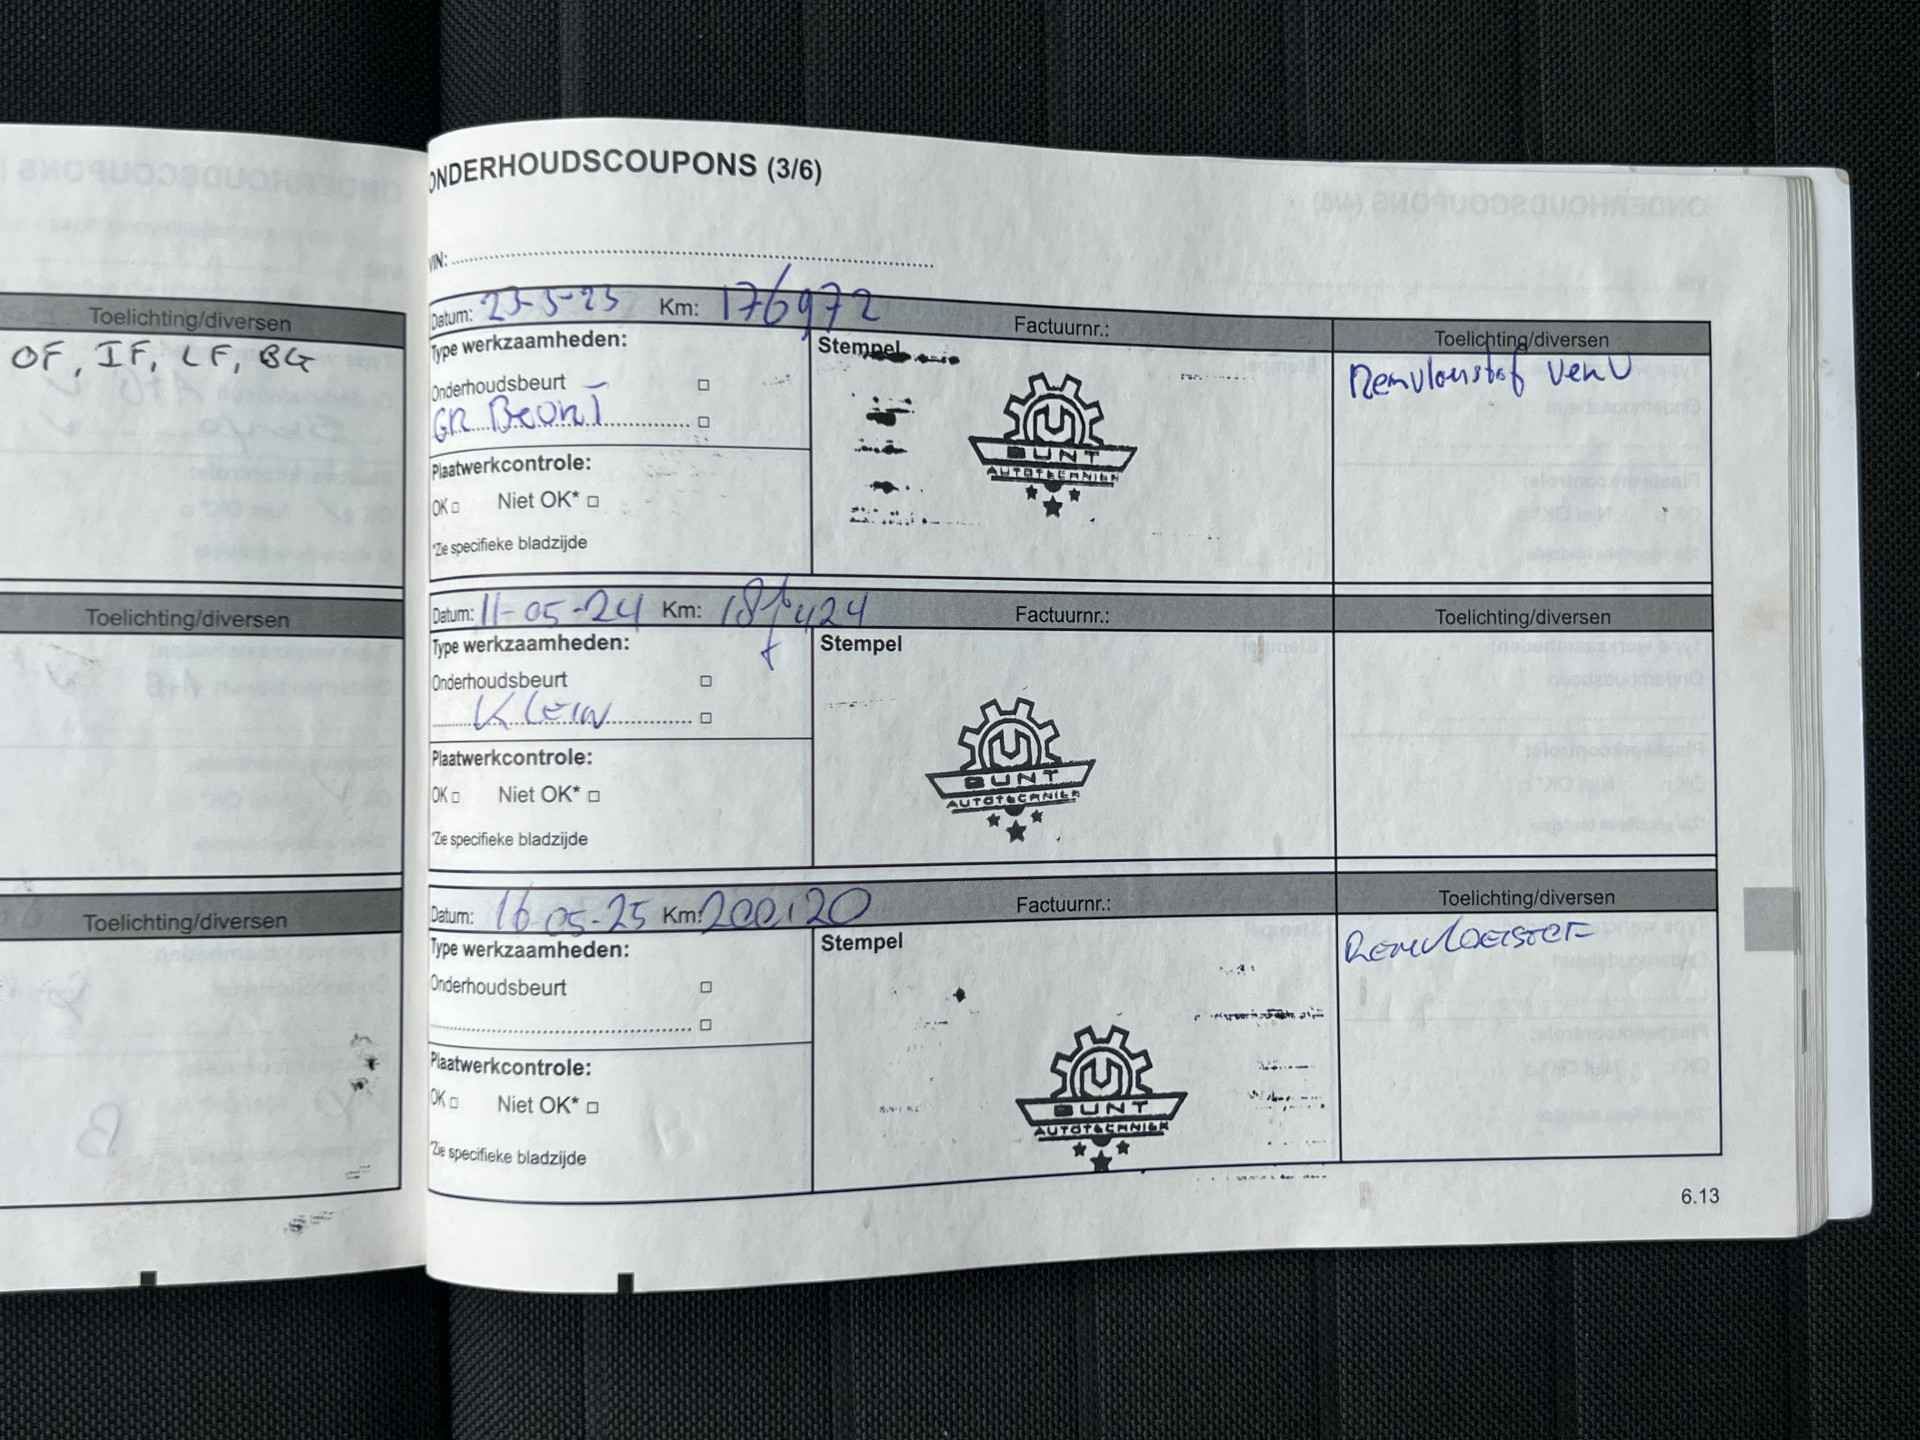 Toelichting/diversen
OF, IF, LF, BG
Toelichting/diversen
Toelichting/diversen
ONDERHOUDSCOUPONS (3/6)
VIN:
Datum: 23-3-23 Km: 176972 Factuurnr.: Toelichting/diversen
Type werkzaamheden: Stempel Remvloeistof verv
Onderhoudsbeurt
GR Beurt
BUNT
AUTOTECHNIEK
Plaatwerkcontrole:
OK Niet OK*
*Zie specifieke bladzijde
Datum: 11-05-24 Km: Factuurnr.: Toelichting/diversen
Type werkzaamheden: Stempel
Onderhoudsbeurt
Klein
BUNT
AUTOTECHNIEK
Plaatwerkcontrole:
OK Niet OK*
*Zie specifieke bladzijde
Datum: 16-05-25 Km: 200120 Factuurnr.: Toelichting/diversen
Type werkzaamheden: Stempel Remvloeistof
Onderhoudsbeurt
BUNT
AUTOTECHNIEK
Plaatwerkcontrole:
OK Niet OK*
*Zie specifieke bladzijde
6.13